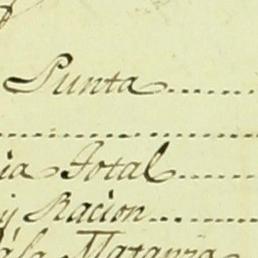 Punta........
ia Total........
y Racion........
á la Matanza